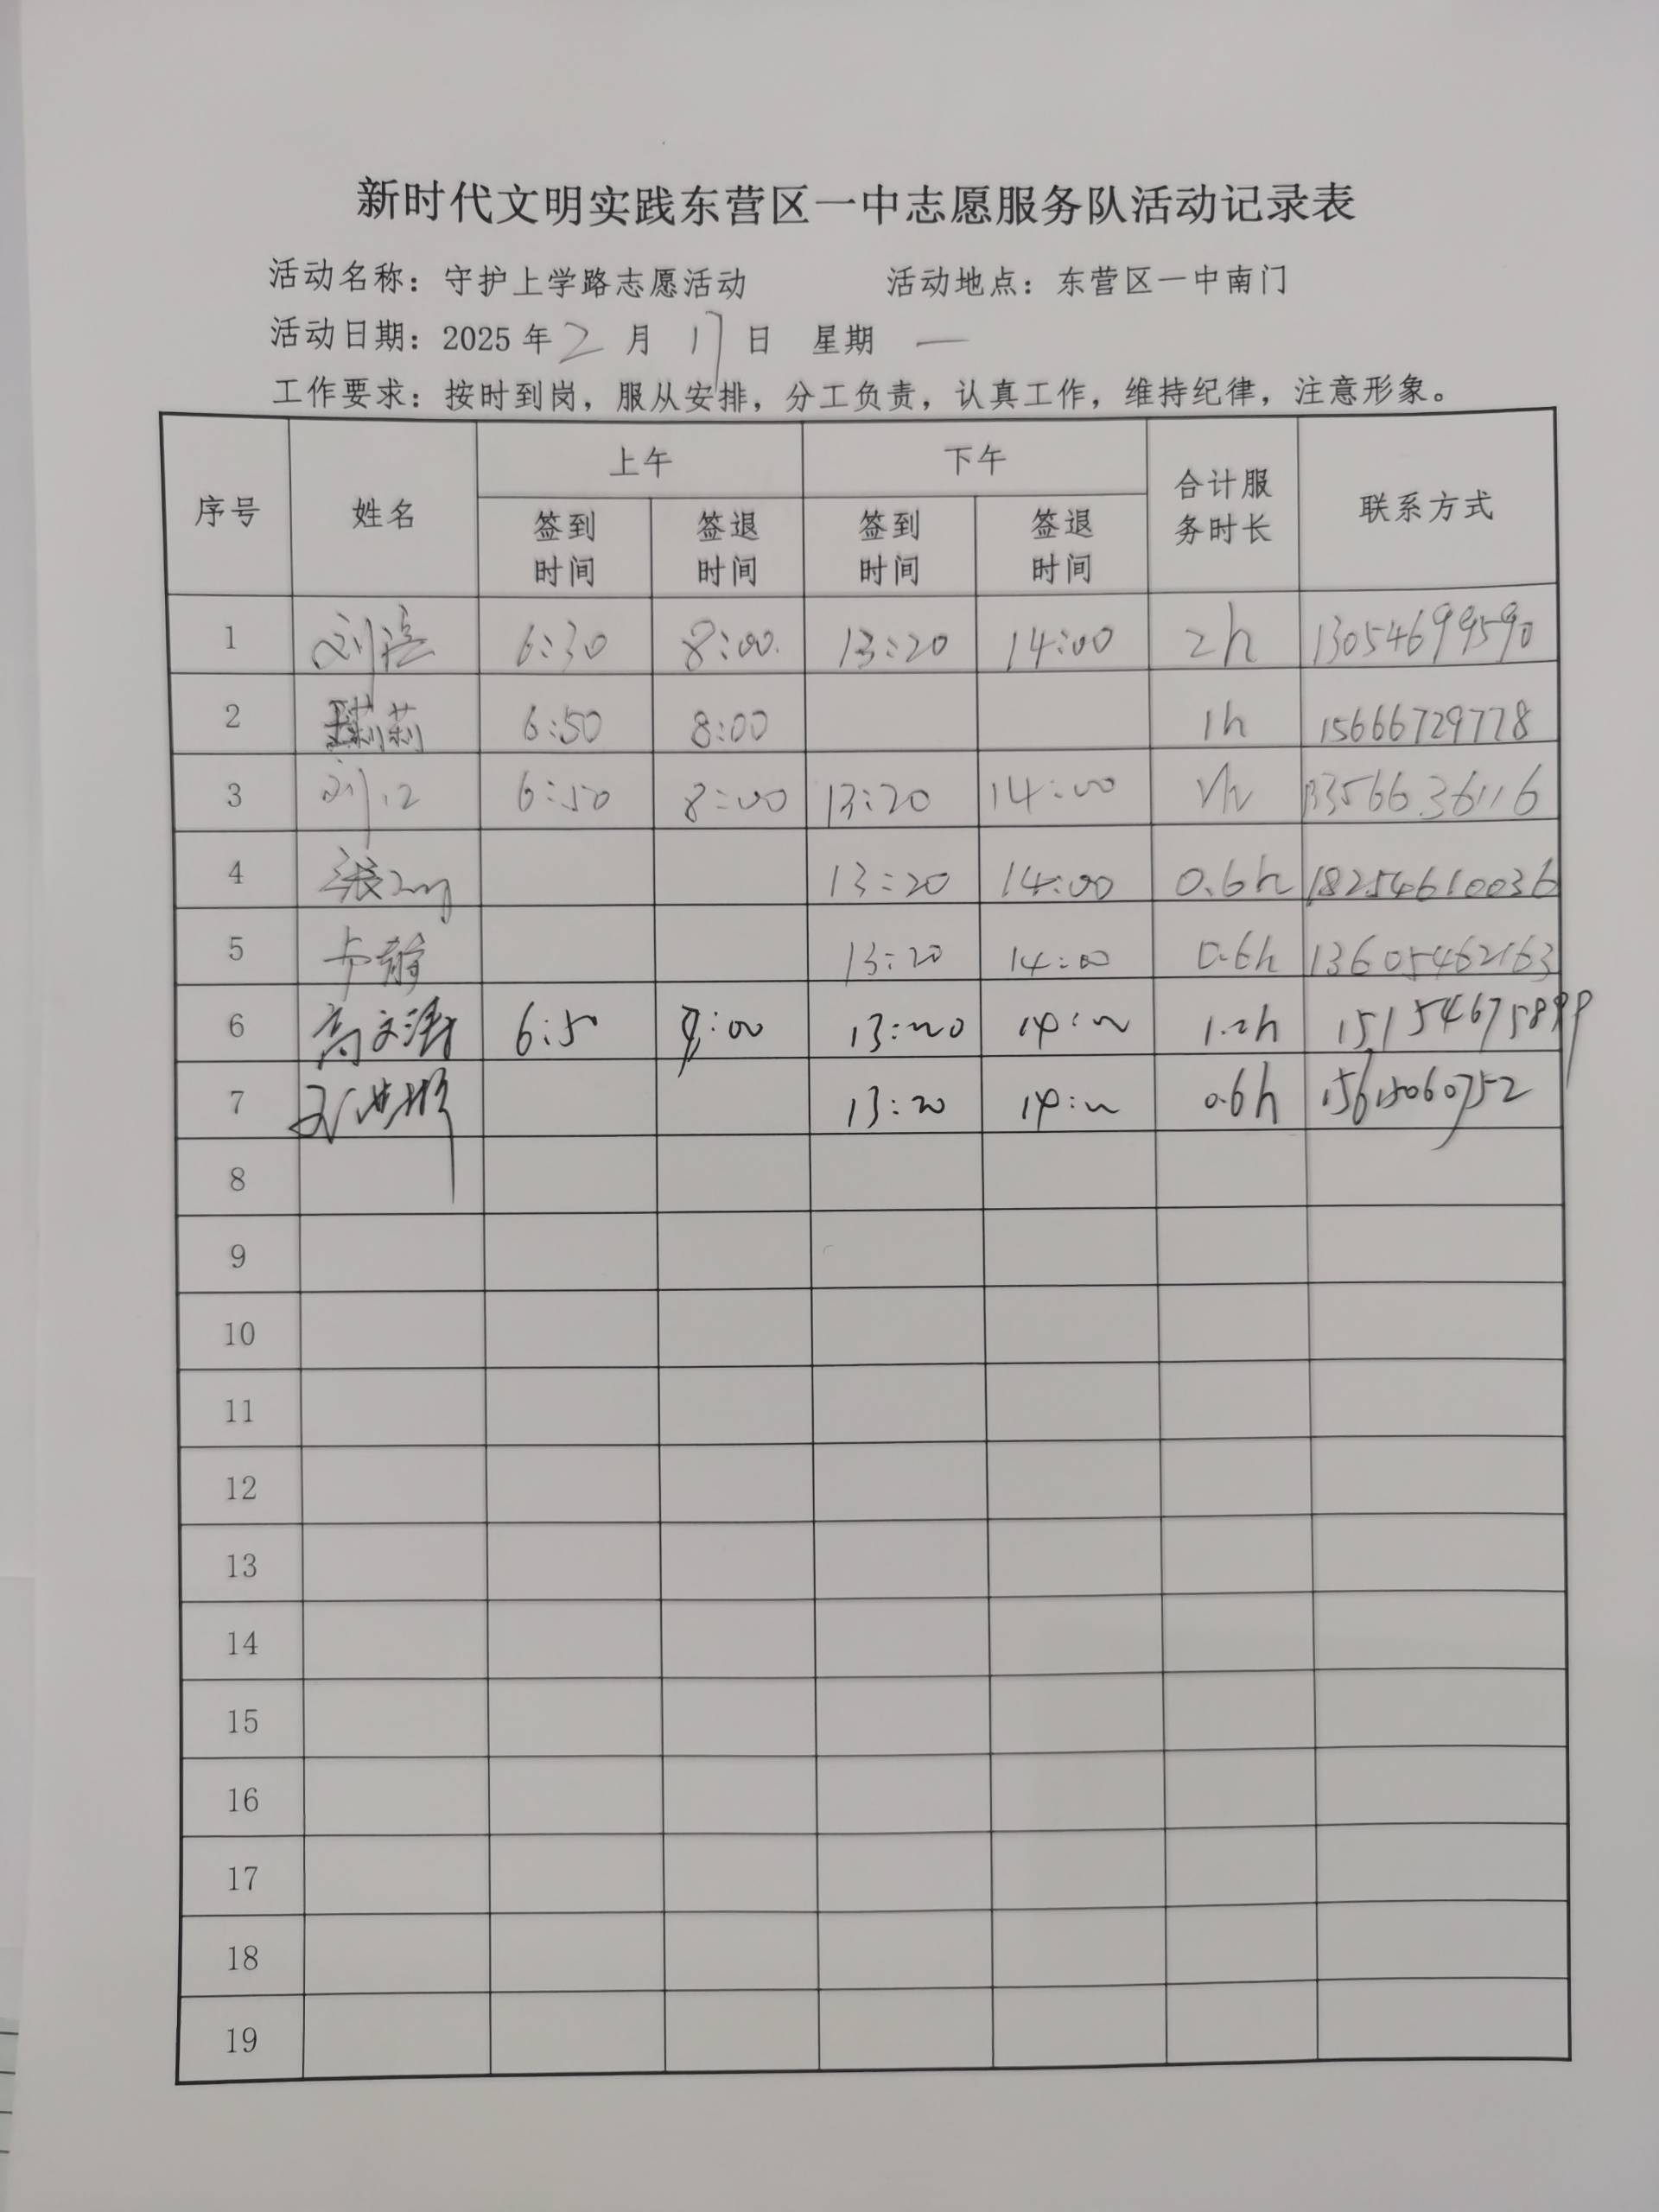 新时代文明实践东营区一中志愿服务队活动记录表
活动名称：守护上学路志愿活动 活动地点：东营区一中南门
活动日期：2025年2月17日 星期一
工作要求：按时到岗，服从安排，分工负责，认真工作，维持纪律，注意形象。
序号 姓名 上午 下午 合计服务时长 联系方式
签到时间 签退时间 签到时间 签退时间
1 刘 6:30 8:00 13:20 14:00 2h 13054699590
2 莉莉 6:50 8:00 1h 15666729778
3 刘 6:50 8:00 13:20 14:00
4 张 13:20 14:00 0.6h 18254610036
5 卢静 13:20 14:00 0.6h 13605462163
6 高文涛 6:50 :00 13:20 14:00 1.2h 15154675899
7 13:20 14:00 0.6h 15615060752
8
9
10
11
12
13
14
15
16
17
18
19